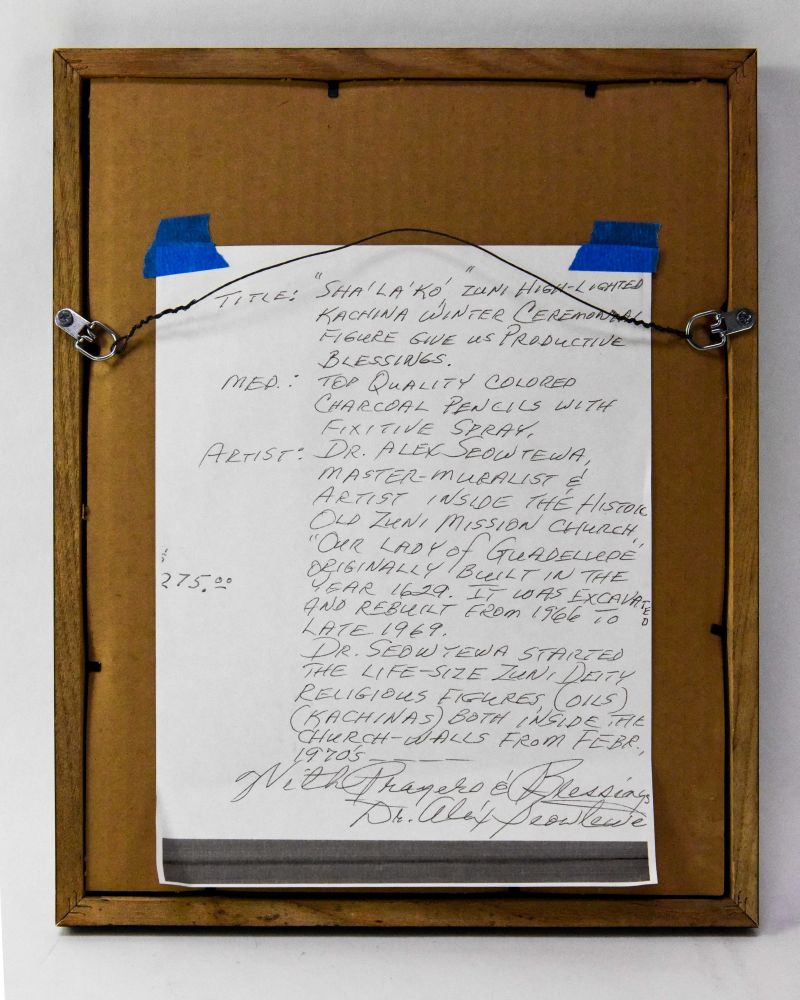 TITLE: "SHA'LA'KO'" ZUNI HIGH-LIGHTED
KACHINA WINTER CEREMONIAL
FIGURE GIVE US PRODUCTIVE
BLESSINGS.
MED.: TOP QUALITY COLORED
CHARCOAL PENCILS WITH
FIXITIVE SPRAY.
ARTIST: DR. ALEX SEOWTEWA,
MASTER-MURALIST &
ARTIST INSIDE THE HISTORIC
OLD ZUNI MISSION CHURCH,
"OUR LADY OF GUADELUPE"
ORIGINALLY BUILT IN THE
$275.00
YEAR 1629. IT WAS EXCAVATED
AND REBUILT FROM 1966 TO
LATE 1969.
DR. SEOWTEWA STARTED
THE LIFE-SIZE ZUNI DEITY
RELIGIOUS FIGURES, (OILS)
(KACHINAS) BOTH INSIDE THE
CHURCH-WALLS FROM FEBR.,
1970'S
With Prayers & Blessings
Dr. Alex Seowtewa